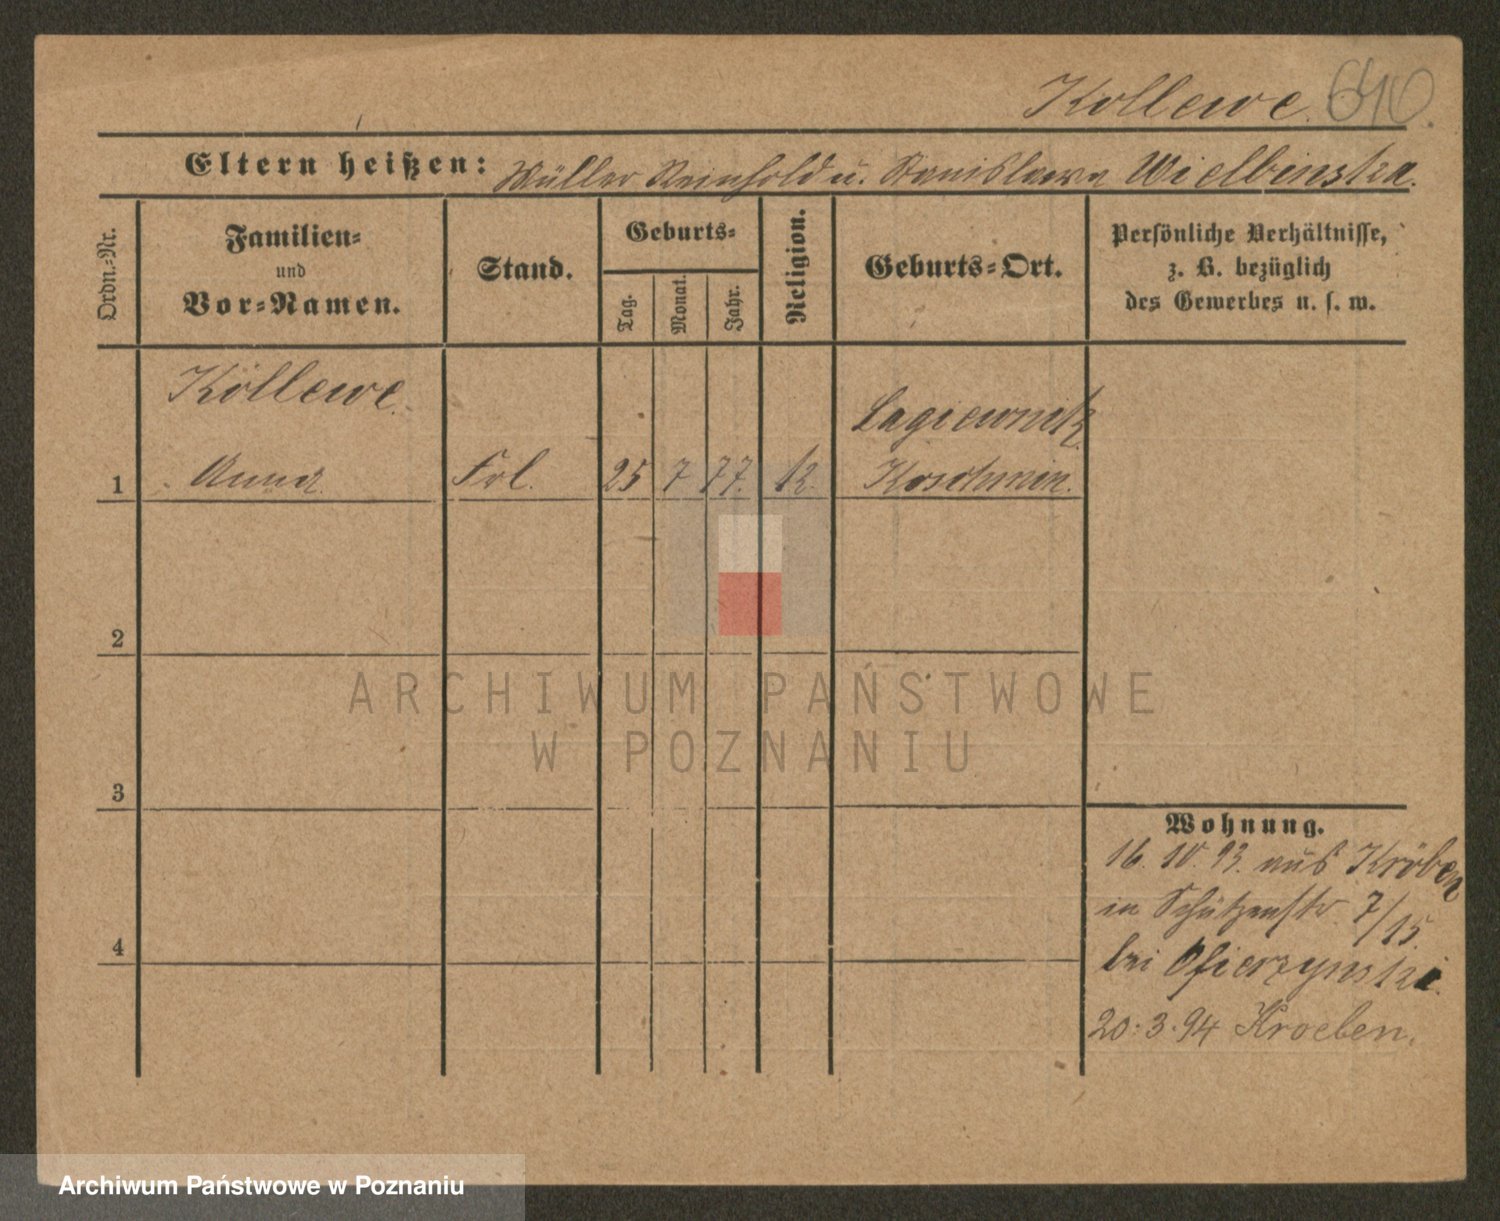 Kollewe. 640.
Eltern heißen: Müller Reinhold u. Stanislawa Wielbinska.
Ordn.-Nr.
Familien-
und
Vor-Namen.
Stand.
Geburts-
Tag.
Monat.
Jahr.
Religion.
Geburts-Ort.
Persönliche Verhältnisse,
z. B. bezüglich
des Gewerbes u. s. w.
Köllewe.
Lagiewnik
1 Anna Frl. 25 7 77. k. Koschmin.
2
ARCHIWUM PAŃSTWOWE
W POZNANIU
3
Wohnung.
16. 10. 93. aus Kröben
in Schützenstr. 7/15.
4
bei Ofierzynski.
20.3.94 Kroeben.
Archiwum Państwowe w Poznaniu